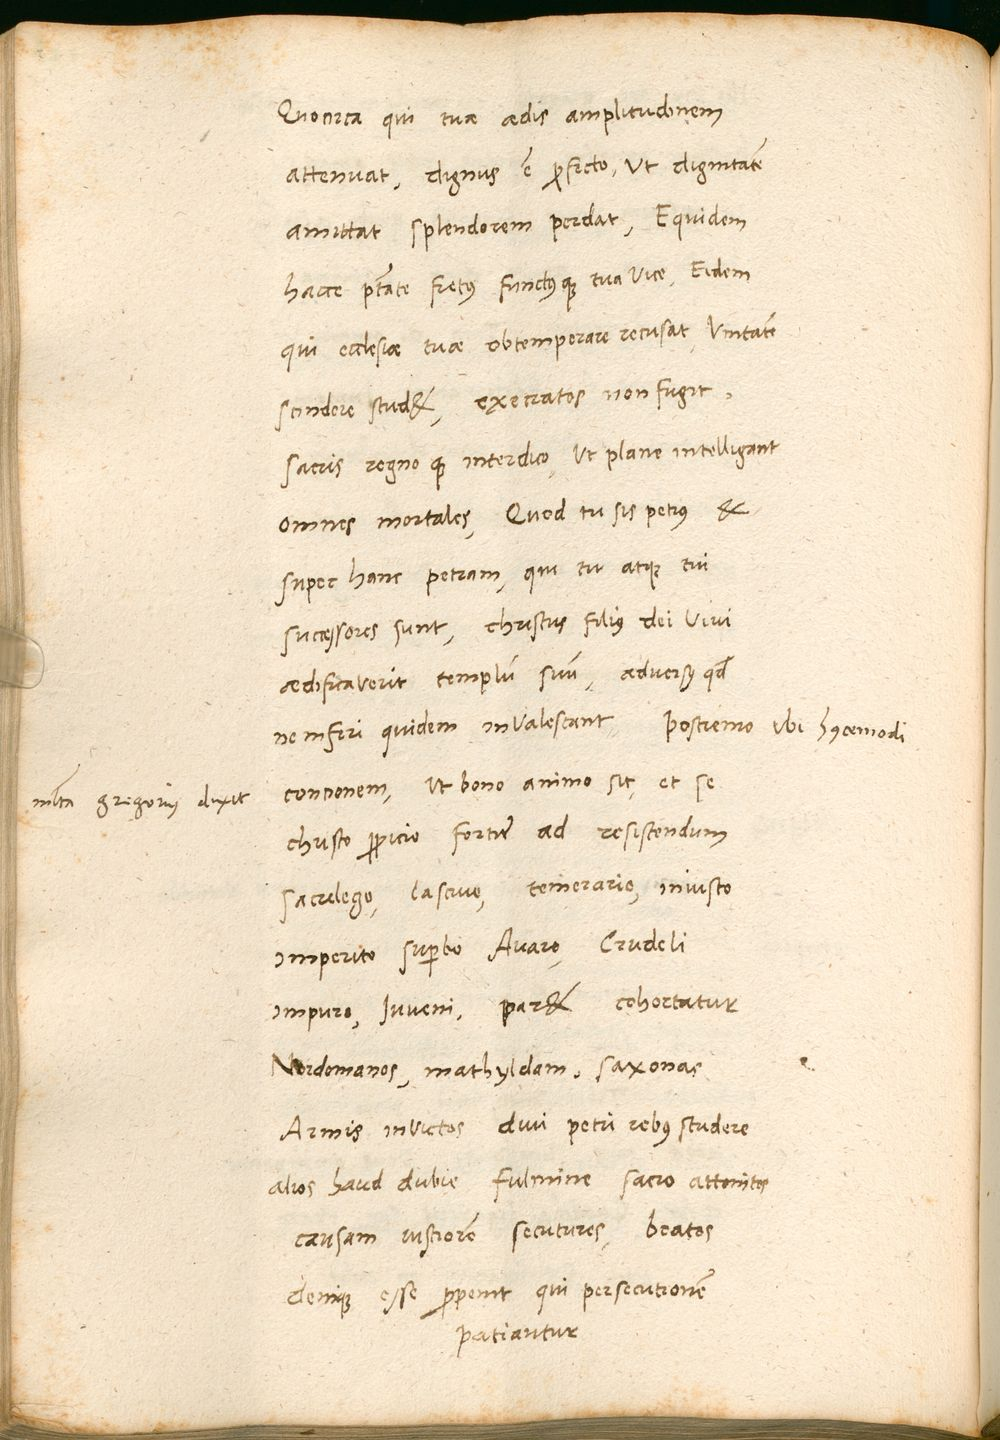 Quocirca qui tuæ ædis amplitudinem
attenuat, dignus ē ꝓfecto, Ut dignitatē
amittat splendorem perdat, Equidem
hacce ptāte fretꝰ functꝰqꝫ tua Vice, Eidem
qui ecclesiæ tuæ obtemperare recusat, Unitatē
scindere stud&, execratos non fugit,
sacris regno qꝫ interdico, Ut plane intelligant
omnes mortales, Quod tu sis petrꝰ &
super hanc petram, qui tu atqꝫ tui
successores sunt, christus filiꝰ dei Vivi
ædificaverit templū suū, adversꝰ qđ
ne inferi quidem inValescunt postremo Vbi hꝰcemodi
mlta gregoriꝰ dixit concionem, Ut bono animo sit, et se
christo ꝓpicio fortiē ad resistendum
sacrilego, lascivo, temerario, iniusto
imperito suꝑbo Avaro, Crudeli
impuro, Iuveni, par& cohortatur
Nordomanos, mathyldam, saxonas
Armis inVictos divi petri rebꝰ studere
alios haud dubie fulmine sacro attonitos
causam iustiorē secuturos, beatos
deniqꝫ esse qui persecutionē
patiantur